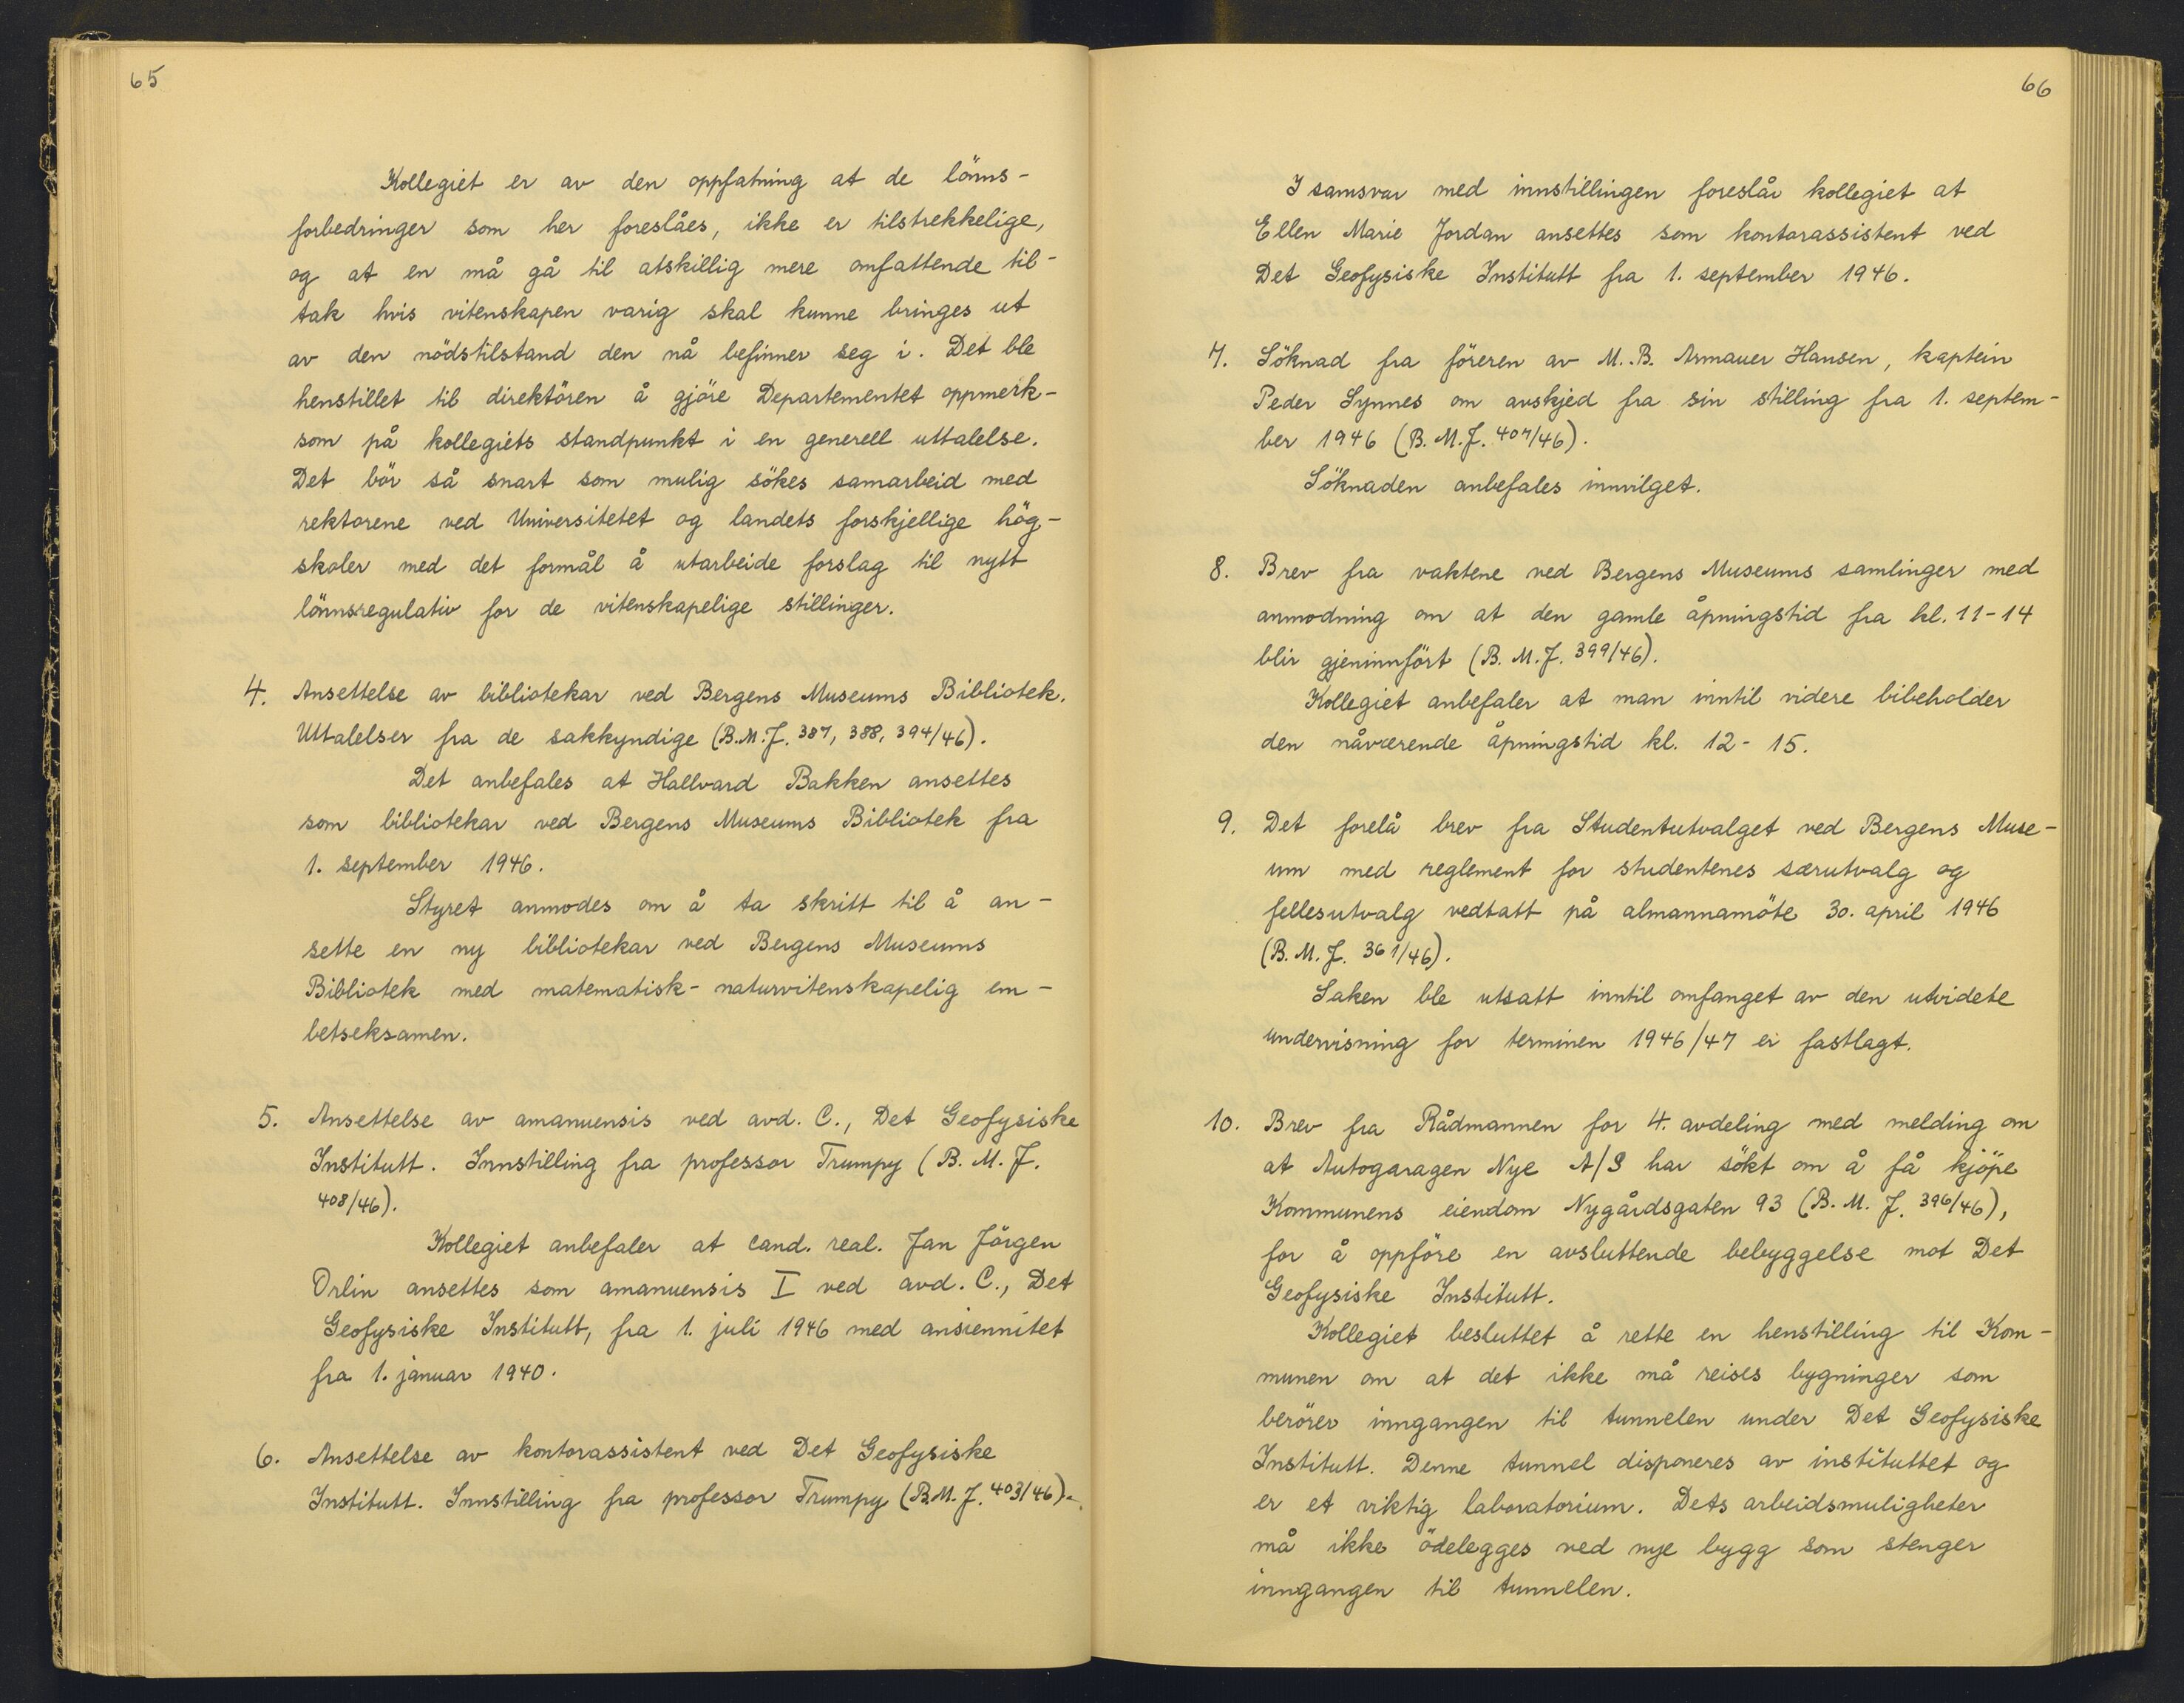 65
Kollegiet er av den oppfatning at de löns-
forbedringer som her foreslåes, ikke er tilstrekkelige,
og at en må gå til atskillig mere omfattende til-
tak hvis vitenskapen varig skal kunne bringes ut
av den nödstilstand den nå befinner seg i. Det ble
henstillet til direktören å gjöre Departementet oppmerk-
som på kollegiets standpunkt i en generell uttalelse.
Det bör så snart som mulig sökes samarbeid med
rektorene ved Universitetet og landets forskjellige hög-
skoler med det formål å utarbeide forslag til nytt
lönnsregulativ for de vitenskapelige stillinger.
4. Ansettelse av bibliotekar ved Bergens Museums Bibliotek.
Uttalelser fra de sakkyndige (B.M.J. 387, 388, 394/46).
Det anbefales at Hallvard Bakken ansettes
som bibliotekar ved Bergens Museums Bibliotek fra
1. september 1946.
Styret anmodes om å ta skritt til å an-
sette en ny bibliotekar ved Bergens Museums
Bibliotek med matematisk-naturvitenskapelig em-
betseksamen.
5. Ansettelse av amanuensis ved avd. C., Det Geofysiske
Institutt. Innstilling fra professor Trumpy (B. M. J.
408/46).
Kollegiet anbefaler at cand. real. Jan Jörgen
Orlin ansettes som amanuensis I ved avd. C., Det
Geofysiske Institutt, fra 1. juli 1946 med ansiennitet
fra 1. januar 1940.
6. Ansettelse av kontorassistent ved Det Geofysiske
Institutt. Innstilling fra professor Trumpy (B.M.J. 403/46).
66
I samsvar med innstillingen foreslår kollegiet at
Ellen Marie Jordan ansettes som kontorassistent ved
Det Geofysiske Institutt fra 1. september 1946.
7. Söknad fra föreren av M.B. Armauer Hansen, kaptein
Peder Synnes om avskjed fra sin stilling fra 1. septem-
ber 1946 (B. M. J. 407/46).
Söknaden anbefales innvilget.
8. Brev fra vaktene ved Bergens Museums samlinger med
anmodning om at den gamle åpningstid fra kl. 11-14
blir gjeninnfört (B. M. J. 399/46).
Kollegiet anbefaler at man inntil videre bibeholder
den nåværende åpningstid kl. 12-15.
9. Det forelå brev fra Studentutvalget ved Bergens Muse-
um med reglement for studentenes særutvalg og
fellesutvalg vedtatt på almannamöte 30. april 1946
(B. M. J. 361/46).
Saken ble utsatt inntil omfanget av den utvidete
undervisning for terminen 1946/47 er fastlagt.
10. Brev fra Rådmannen for 4. avdeling med melding om
at Autogaragen Nye A/S har sökt om å få kjöpe
Kommunens eiendom Nygårdsgaten 93 (B. M. J. 396/46),
for å oppföre en avsluttende bebyggelse mot Det
Geofysiske Institutt.
Kollegiet besluttet å rette en henstilling til Kom-
munen om at det ikke må reises bygninger som
berörer inngangen til tunnelen under Det Geofysiske
Institutt. Denne tunnel disponeres av instituttet og
er et viktig laboratorium. Dets arbeidsmuligheter
må ikke ödelegges ved nye bygg som stenger
inngangen til tunnelen.